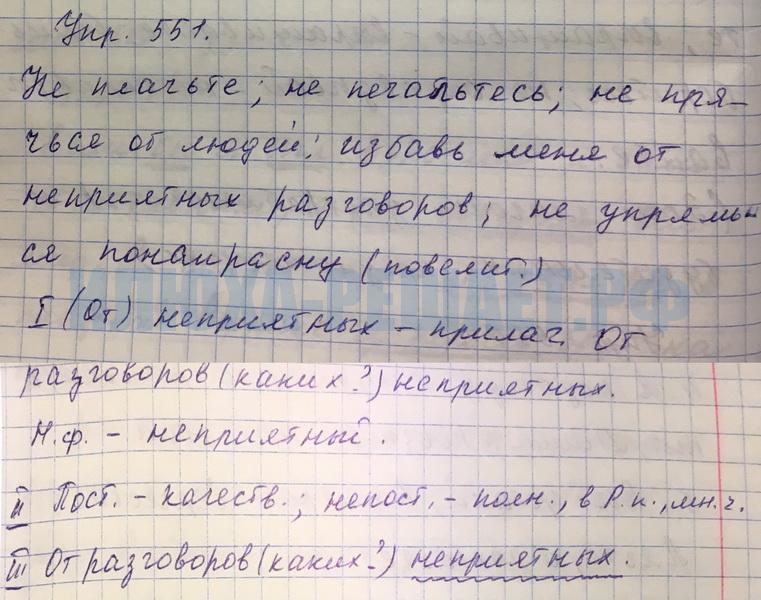 Упр. 551.
Не плачьте; не печальтесь; не пря-
чься от людей; избавь меня от
неприятных разговоров; не упрямь
ся понапрасну (повелит.)
ИЛЮХА-РЕШАЕТ.РФ
I (От) неприятных - прилаг. От
разговоров (каких?) неприятных.
Н.ф. - неприятный.
II Пост. - качеств.; непост. - полн., в Р.п., мн.ч.
III От разговоров (каких?) неприятных.